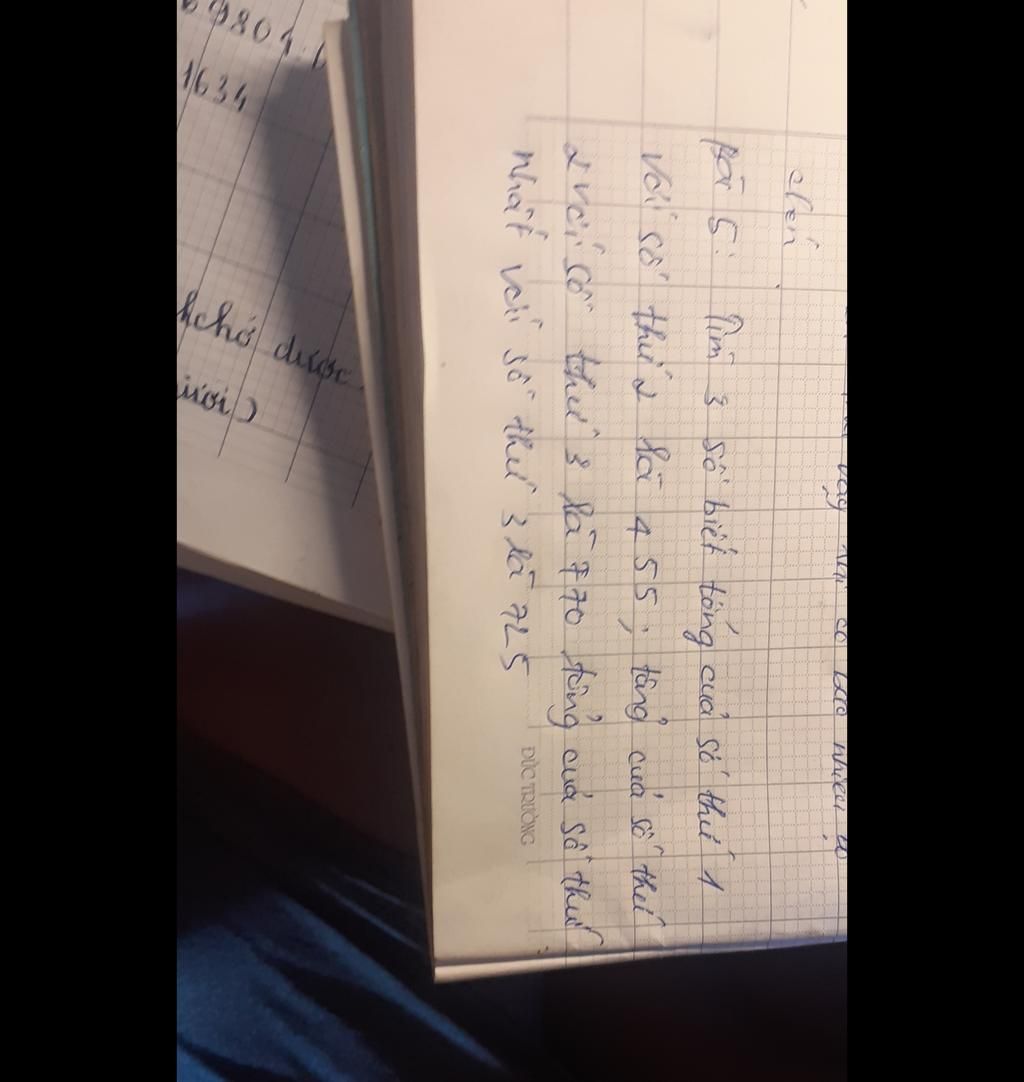 9804
1634
chó được
ươi)
nhiêu
đèn
Bài 5: Tìm 3 số biết tổng của số thứ 1
với số thứ 2 là 455; tổng của số thứ
2 với số thứ 3 là 770 tổng của số thứ
nhất với số thứ 3 là 725
ĐỨC TRƯỜNG